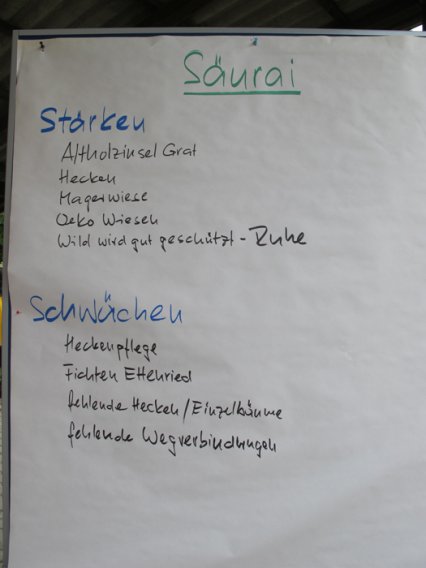 Säurai
Stärken
Altholzinsel Grat
Hecken
Magerwiese
Oeko Wiesen
Wild wird gut geschützt - Ruhe
Schwächen
Heckenpflege
Fichten Ettenried
fehlende Hecken/Einzelbäume
fehlende Wegverbindungen